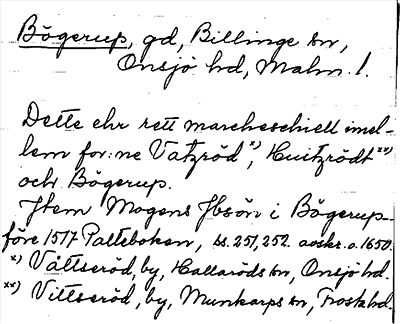 Bögerup, gd, Billinge sn,
Onsjö hd, Malm. l.
Dette ehr rett marcheschiell imel-
lem for:ne Vatzröd*), Huitzrödt**)
och Bögerup.
Item Mogens Ibsön i Bögerup
före 1517 Palteboken, ss. 251, 252. avskr. o. 1650.
*) Våttseröd, by, Hallaröds sn, Onsjö hd.
**) Vittseröd, by, Munkarps sn, Frosta hd.